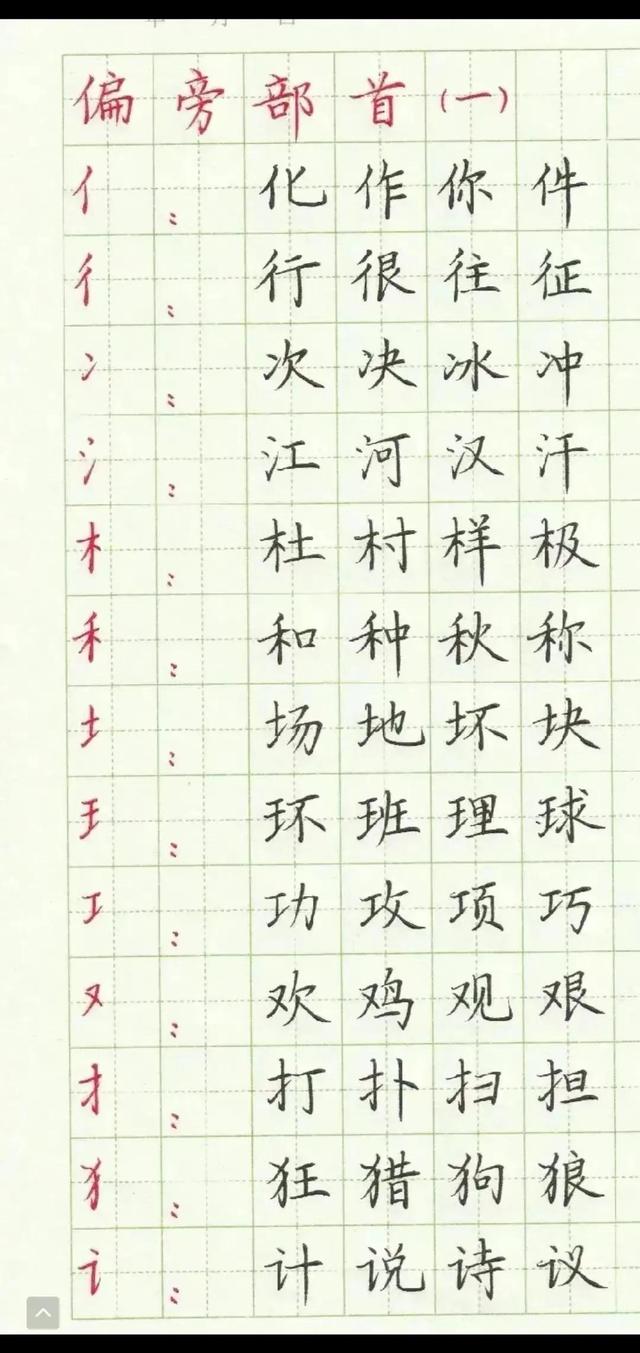 偏旁部首(一)
亻：化作你件
彳：行很往征
冫：次决冰冲
氵：江河汉汗
木：杜村样极
禾：和种秋称
土：场地坏块
王：环班理球
工：功攻项巧
又：欢鸡观艰
扌：打扑扫担
犭：狂猎狗狼
讠：计说诗议